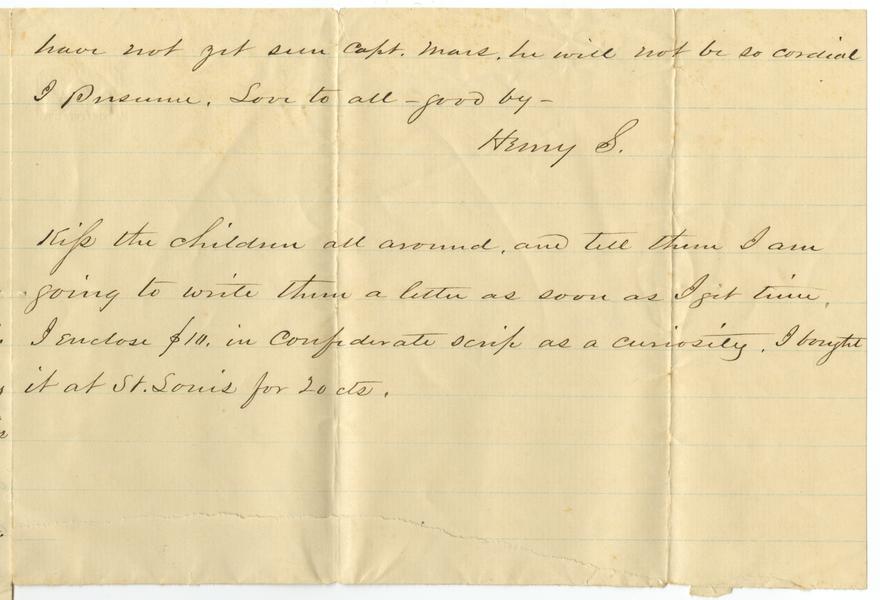 have not yet seen Capt. Mars, he will not be so cordial
I Presume. Love to all - good by -
Henry S.
Kiss the children all around, and tell them I am
going to write them a letter as soon as I get time,
I enclose $10. in Confederate scrip as a curiosity. I bought
it at St. Louis for 20 cts.